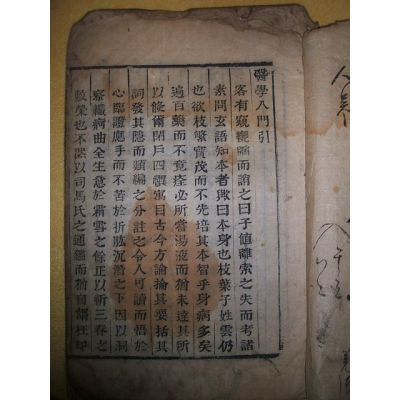 醫學入門引
客有窺甕牖而誚之曰子值離索之失而考諸
素問玄語知本者歟曰本身也枝葉子姓雲仍
也欲枝繁實茂而不先培其本智乎身病多矣
遍百藥而不竟痊必所嘗湯液而猶未達其所
以倏爾閉戶四禩寓目古今方論掄其要括其
詞發其隱而類編之分註之令人可讀而悟於
心臨證應手而不苦於折肱沉潛之下因以洞
察纖疴曲全生意於霜雪之餘正以斬三春之
敷榮也不然以司馬氏之通鑑而猶自謂枉却